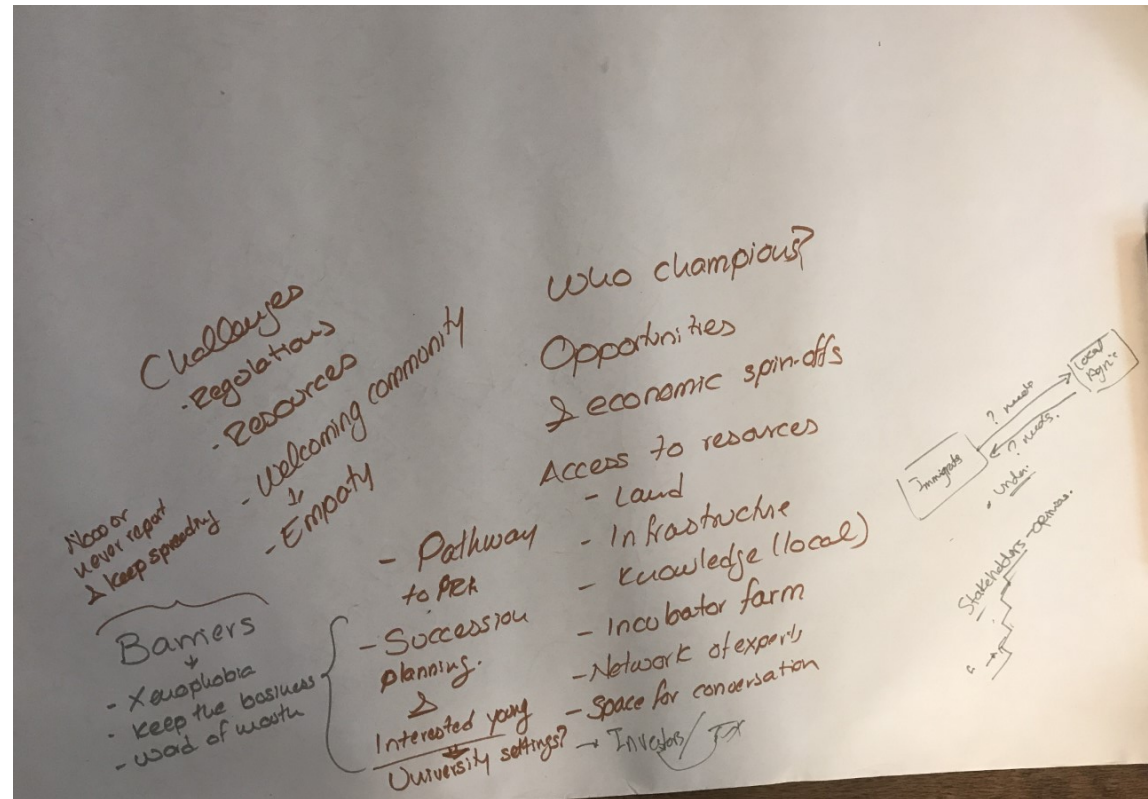 Challenges
· Regolations
· Resources
- Welcoming community
&
- Empaty
never report
& keep spreeding
Barriers
- Xenophobia
· Keep the business
- word of mouth
- Pathway
to
- Succession
planning.
&
Interested young
University settings?
Who champious?
Opportunities
& economic spin-offs
Access to resources
- Land
- Infrastructure
- Knowledge (local)
- Incubator farm
- Network of experts
- Space for conversation
→ Investors/
Immigrants
? needs
? needs.
Local
· under.
Stakeholders - opinions.